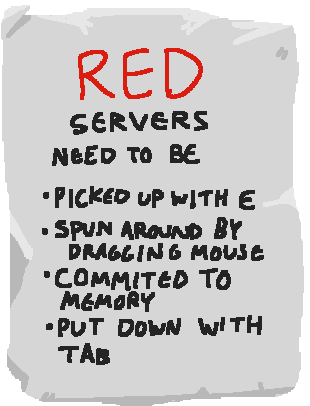 RED
SERVERS
NEED TO BE
• PICKED UP WITH E
• SPUN AROUND BY
DRAGGING MOUSE
• COMMITED TO
MEMORY
• PUT DOWN WITH
TAB